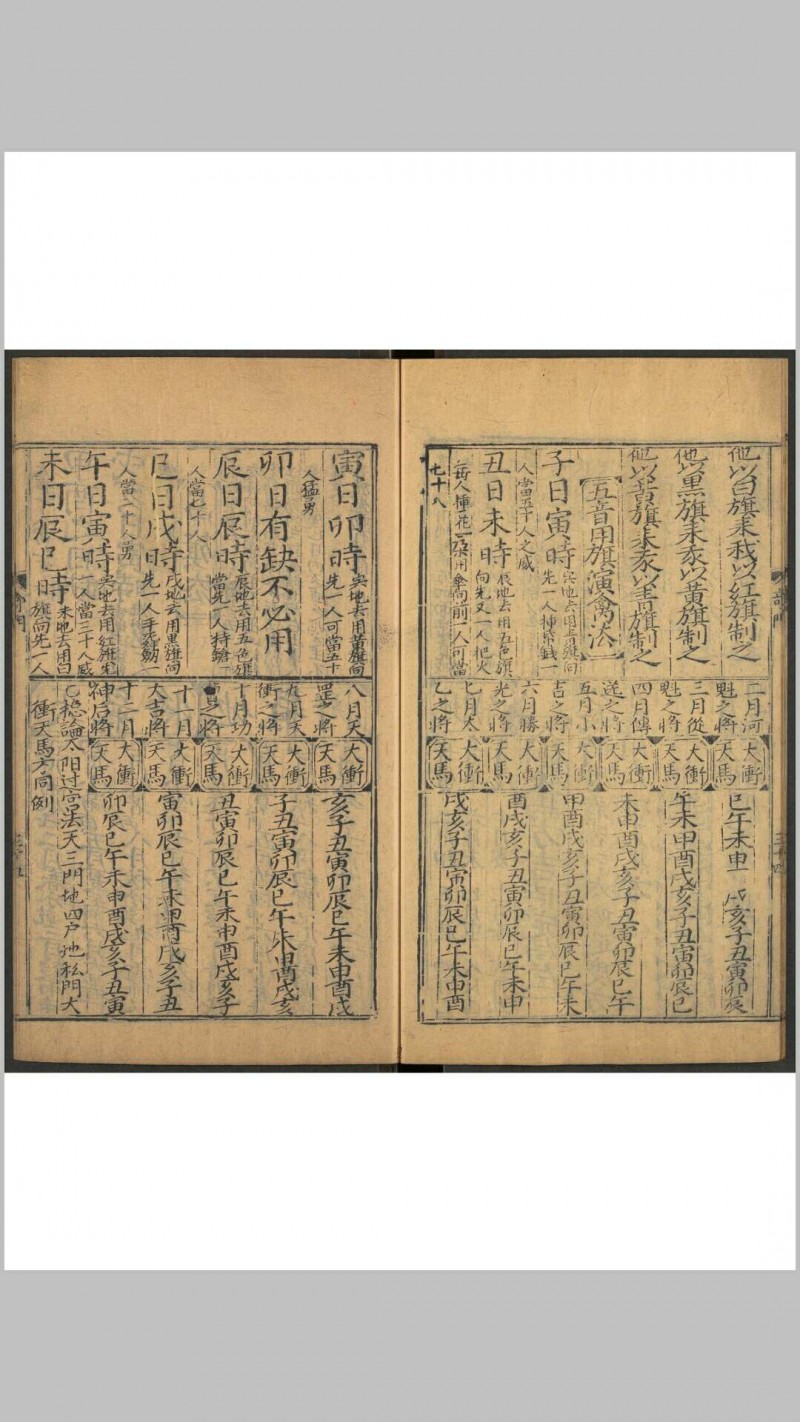 他以白旗來我以紅旗制之
他以黑旗來我以黃旗制之
他以黃旗來我以青旗制之
五音用旗演禽法
子日寅時
先一人捶
人當五千人之威
丑日未時
辰地去用五色旗
向先又一人把火
七十八
二月河
魁之將
大衝
天馬
巳午未申
戌亥子丑寅卯辰
三月從
魁之將
大衝
天馬
午未申酉戌亥子丑寅卯辰巳
四月傳
送之將
大衝
天馬
未申酉戌亥子丑寅卯辰巳午
五月小
吉之將
大衝
天馬
申酉戌亥子丑寅卯辰巳午未
六月勝
光之將
大衝
天馬
酉戌亥子丑寅卯辰巳午未申
七月太
乙之將
大衝
天馬
戌亥子丑寅卯辰巳午未申酉
寅日卯時
寅地去用黃旗向
先一人可當五十
人猛勇
卯日有缺不必用
辰日辰時
辰地去用五色旗
當先一人持鎗
人當七十人
巳日戌時
戌地去用黑旗向
人當二十人勇
午日寅時
寅地去用紅旗先
一人當三十人威
未日辰巳時
未地去用白
旗向先一人
八月天
罡之將
大衝
天馬
亥子丑寅卯辰巳午未申酉戌
九月天
衝之將
大衝
天馬
子丑寅卯辰巳午未申酉戌亥
十月功
曹之將
大衝
天馬
丑寅卯辰巳午未申酉戌亥子
十一月
大吉將
大衝
天馬
寅卯辰巳午未申酉戌亥子丑
十二月
神后將
大衝
天馬
卯辰巳午未申酉戌亥子丑寅
已穩論太阳过宮法天三門地四户地私門大
衝天馬方向例